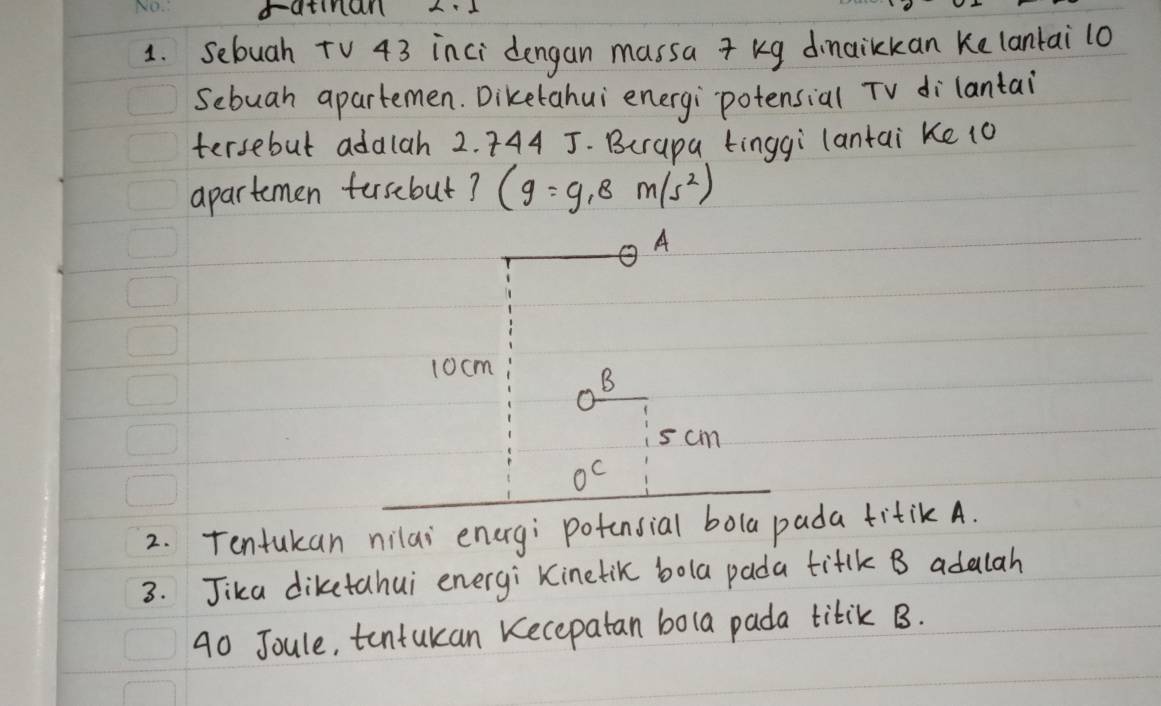 No.:
Latihan 2.1
1. Sebuah TV 43 inci dengan massa 7 kg dinaikkan ke lantai 10
Sebuah apartemen. Diketahui energi potensial TV di lantai
tersebut adalah 2.744 J. Berapa tinggi lantai ke 10
apartemen tersebut? (g = 9,8 m/s²)
A
10 cm
B
5 cm
C
2. Tentukan nilai energi potensial bola pada titik A.
3. Jika diketahui energi kinetik bola pada titik B adalah
40 Joule, tentukan kecepatan bola pada titik B.